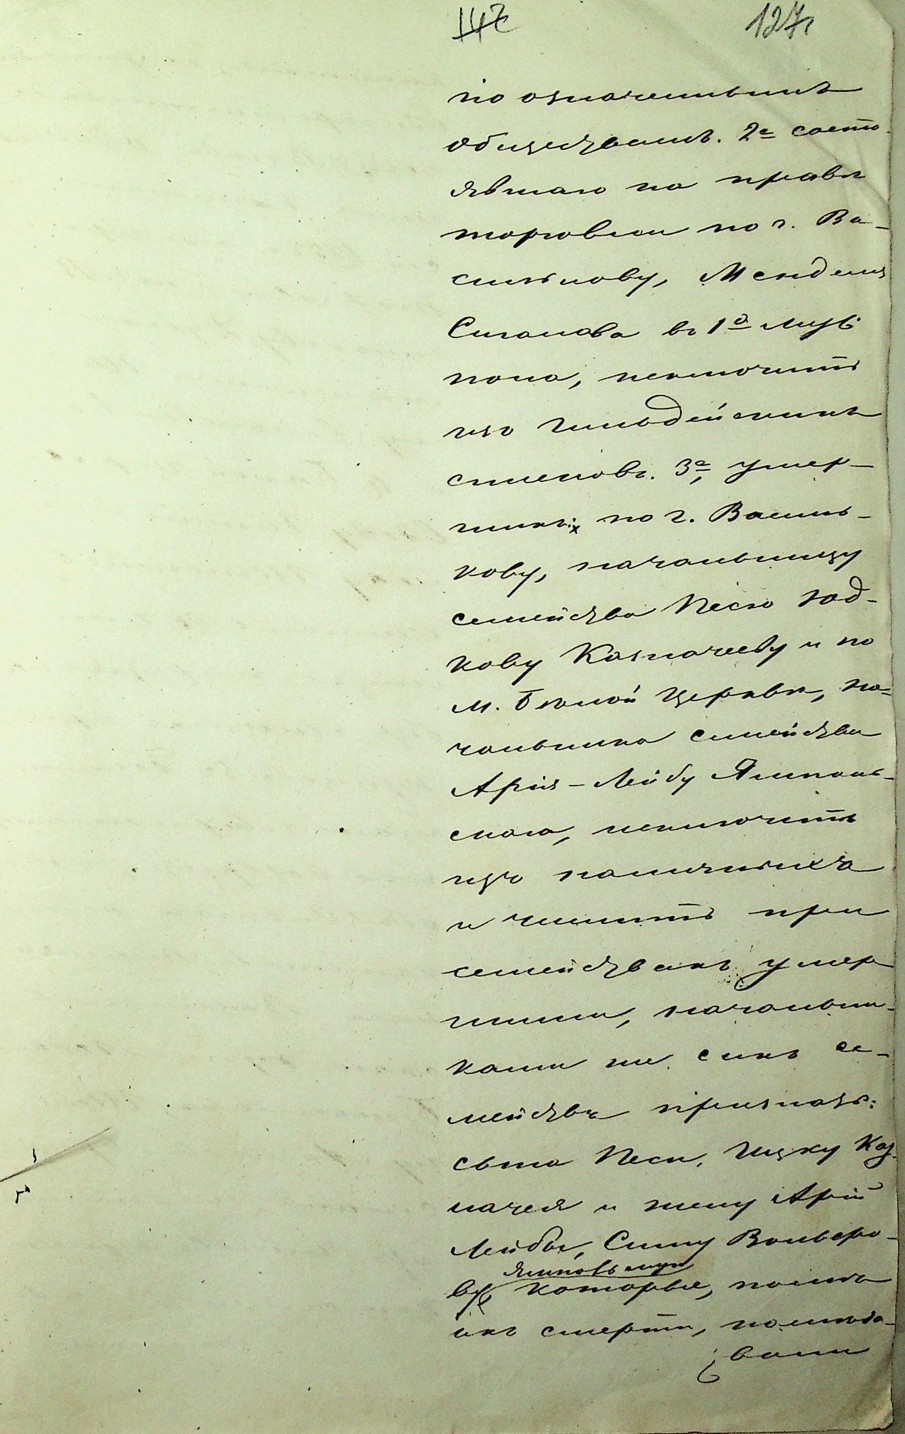 147 127
по означеннымъ
обществамъ. 2е состо
явшаго на правѣ
торговли по г. Ва-
силькову, Менделя
Сигалова въ 1й
исключить
изъ гильдейскихъ
списковъ. 3е, умер-
шихъ: по г. Василь-
кову, начальницу
семейства Песю Юд-
кову Казначееву и по
м. Бѣлой Церкви, на-
чальника семейства
Арія-Лейбу Ямполь-
скаго, исключить
изъ наличныхъ
и числить при
семействахъ умер
шими, начальни-
ками же сихъ се-
мействъ признать:
сына Песи, Ицку Каз-
начея и жену Арій
Лейбы, Симу Вольфо-
Ямпольскую
которые, послѣ
ихъ смерти, наслѣдо-
вали